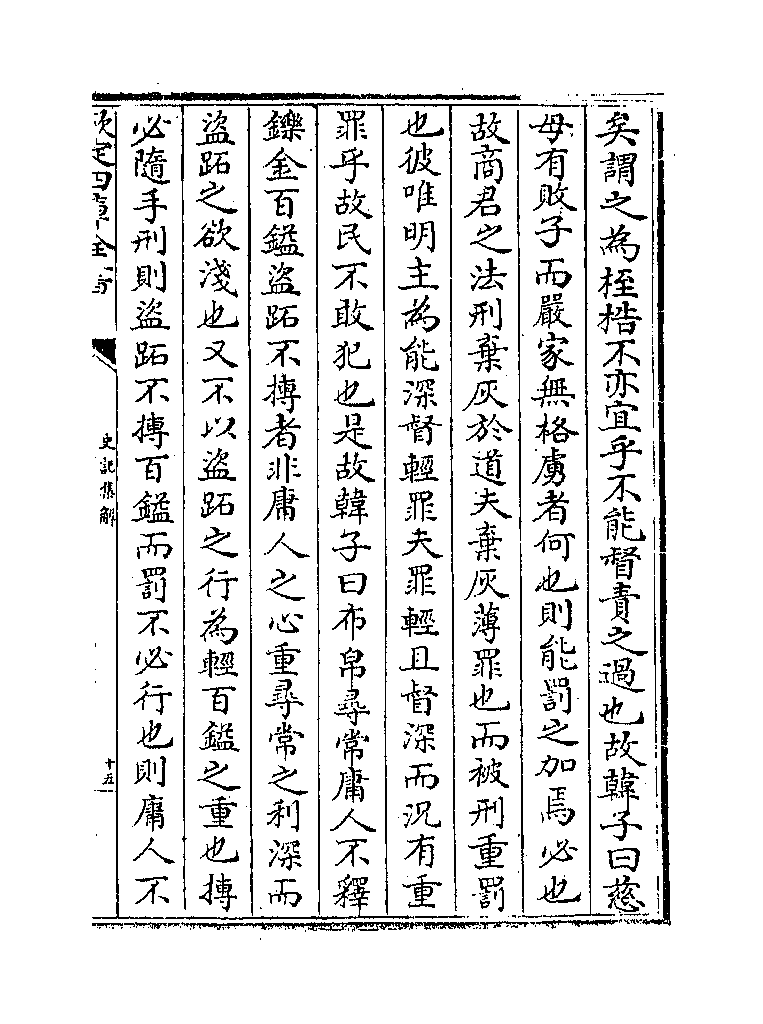 矣謂之為桎梏不亦宜乎不能督責之過也故韓子曰慈
母有敗子而嚴家無格虜者何也則能罰之加焉必也
故商君之法刑棄灰於道夫棄灰薄罪也而被刑重罰
也彼唯明主為能深督輕罪夫罪輕且督深而況有重
罪乎故民不敢犯也是故韓子曰布帛尋常庸人不釋
鑠金百鎰盜跖不搏者非庸人之心重尋常之利深而
盜跖之欲淺也又不以盜跖之行為輕百鎰之重也搏
必隨手刑則盜跖不搏百鎰而罰不必行也則庸人不
欽定四庫全書
史記集解
十五